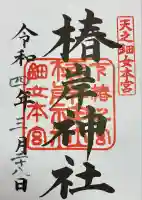 天之細女本宮
椿岸神社
令和四年三月二十八日
細女本宮